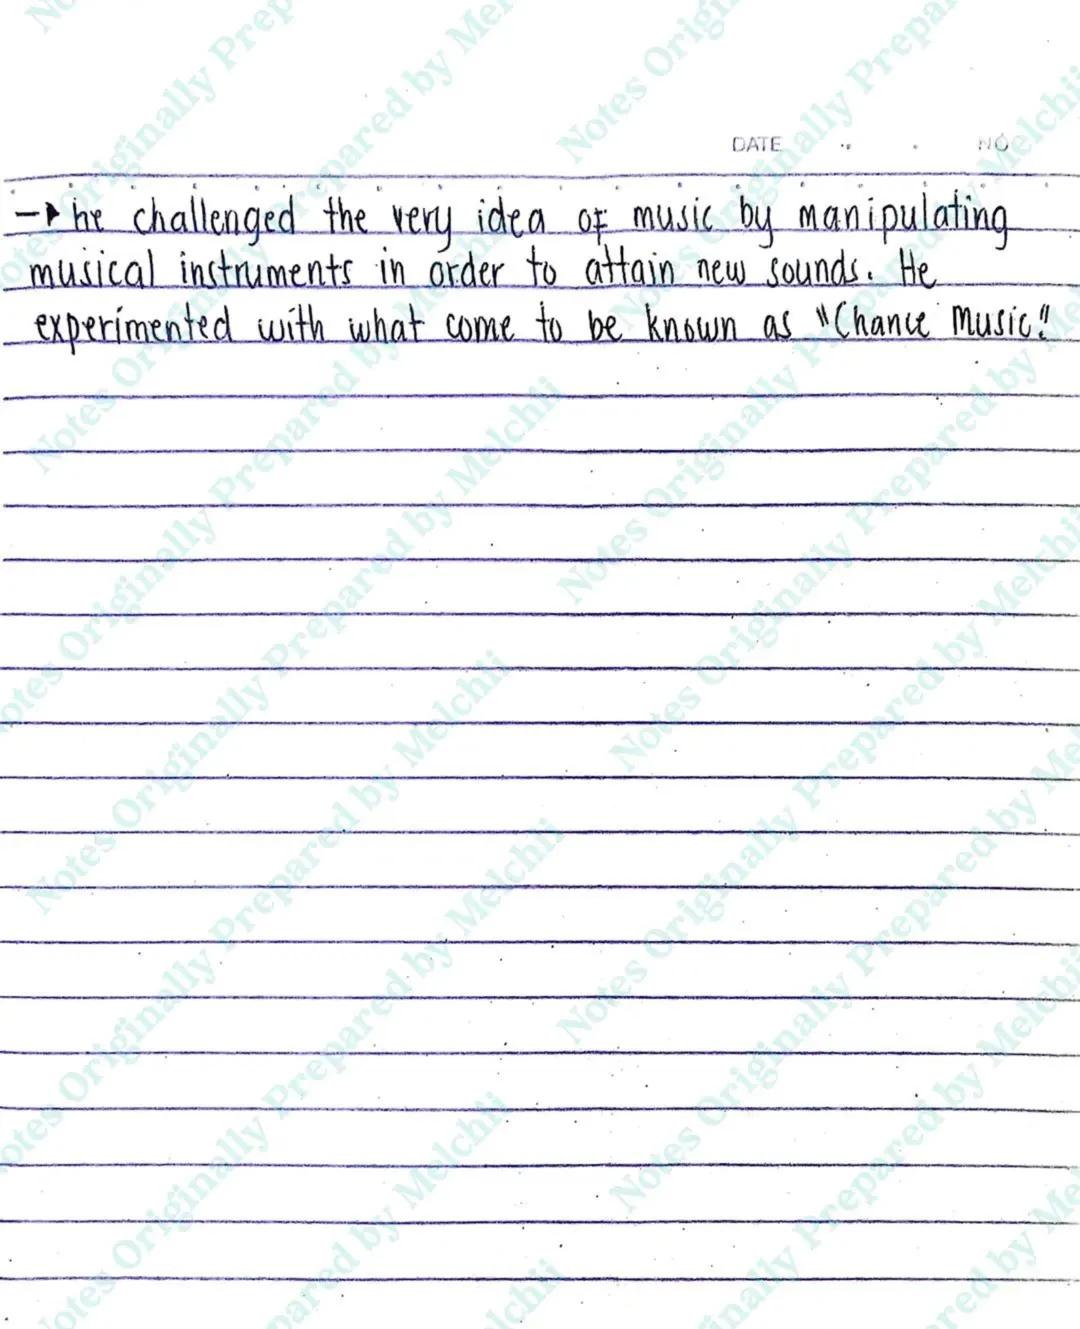 DATE NO
→ he challenged the very idea of music by manipulating
musical instruments in order to attain new sounds. He
experimented with what come to be known as "Chance Music."
Notes Originally Prepared by Melchii